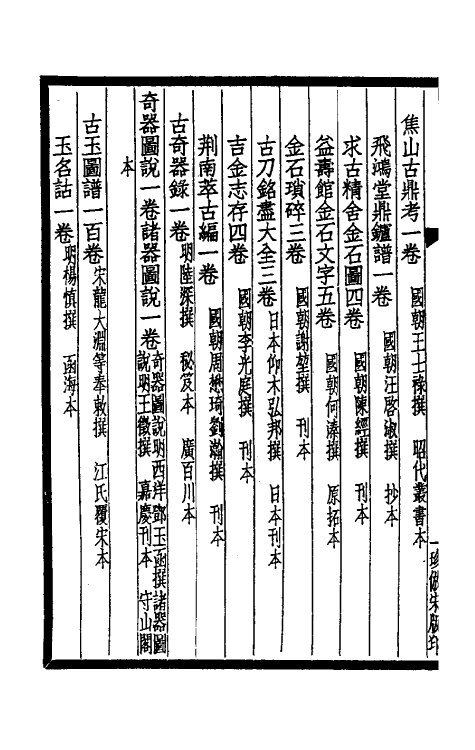 焦山古鼎考一卷　國朝王士祿撰　昭代叢書本
飛鴻堂鼎鑪譜一卷　國朝汪啓淑撰　抄本
求古精舍金石圖四卷　國朝陳經撰　刊本
益壽館金石文字五卷　國朝何溱撰　原拓本
金石瑣碎三卷　國朝謝堃撰　刊本
古刀銘盡大全三卷　日本仰木弘邦撰　日本刊本
吉金志存四卷　國朝李光庭撰　刊本
荆南萃古編一卷　國朝周懋琦劉瀚撰　刊本
古奇器錄一卷　明陸深撰　秘笈本　廣百川本
奇器圖說一卷諸器圖說一卷　奇器圖說明西洋鄧玉函撰諸器圖說明王徵撰　嘉慶刊本　守山閣
本
古玉圖譜一百卷　宋龍大淵等奉敕撰　江氏覆宋本
玉名詁一卷　明楊慎撰　函海本
珍倣宋版印